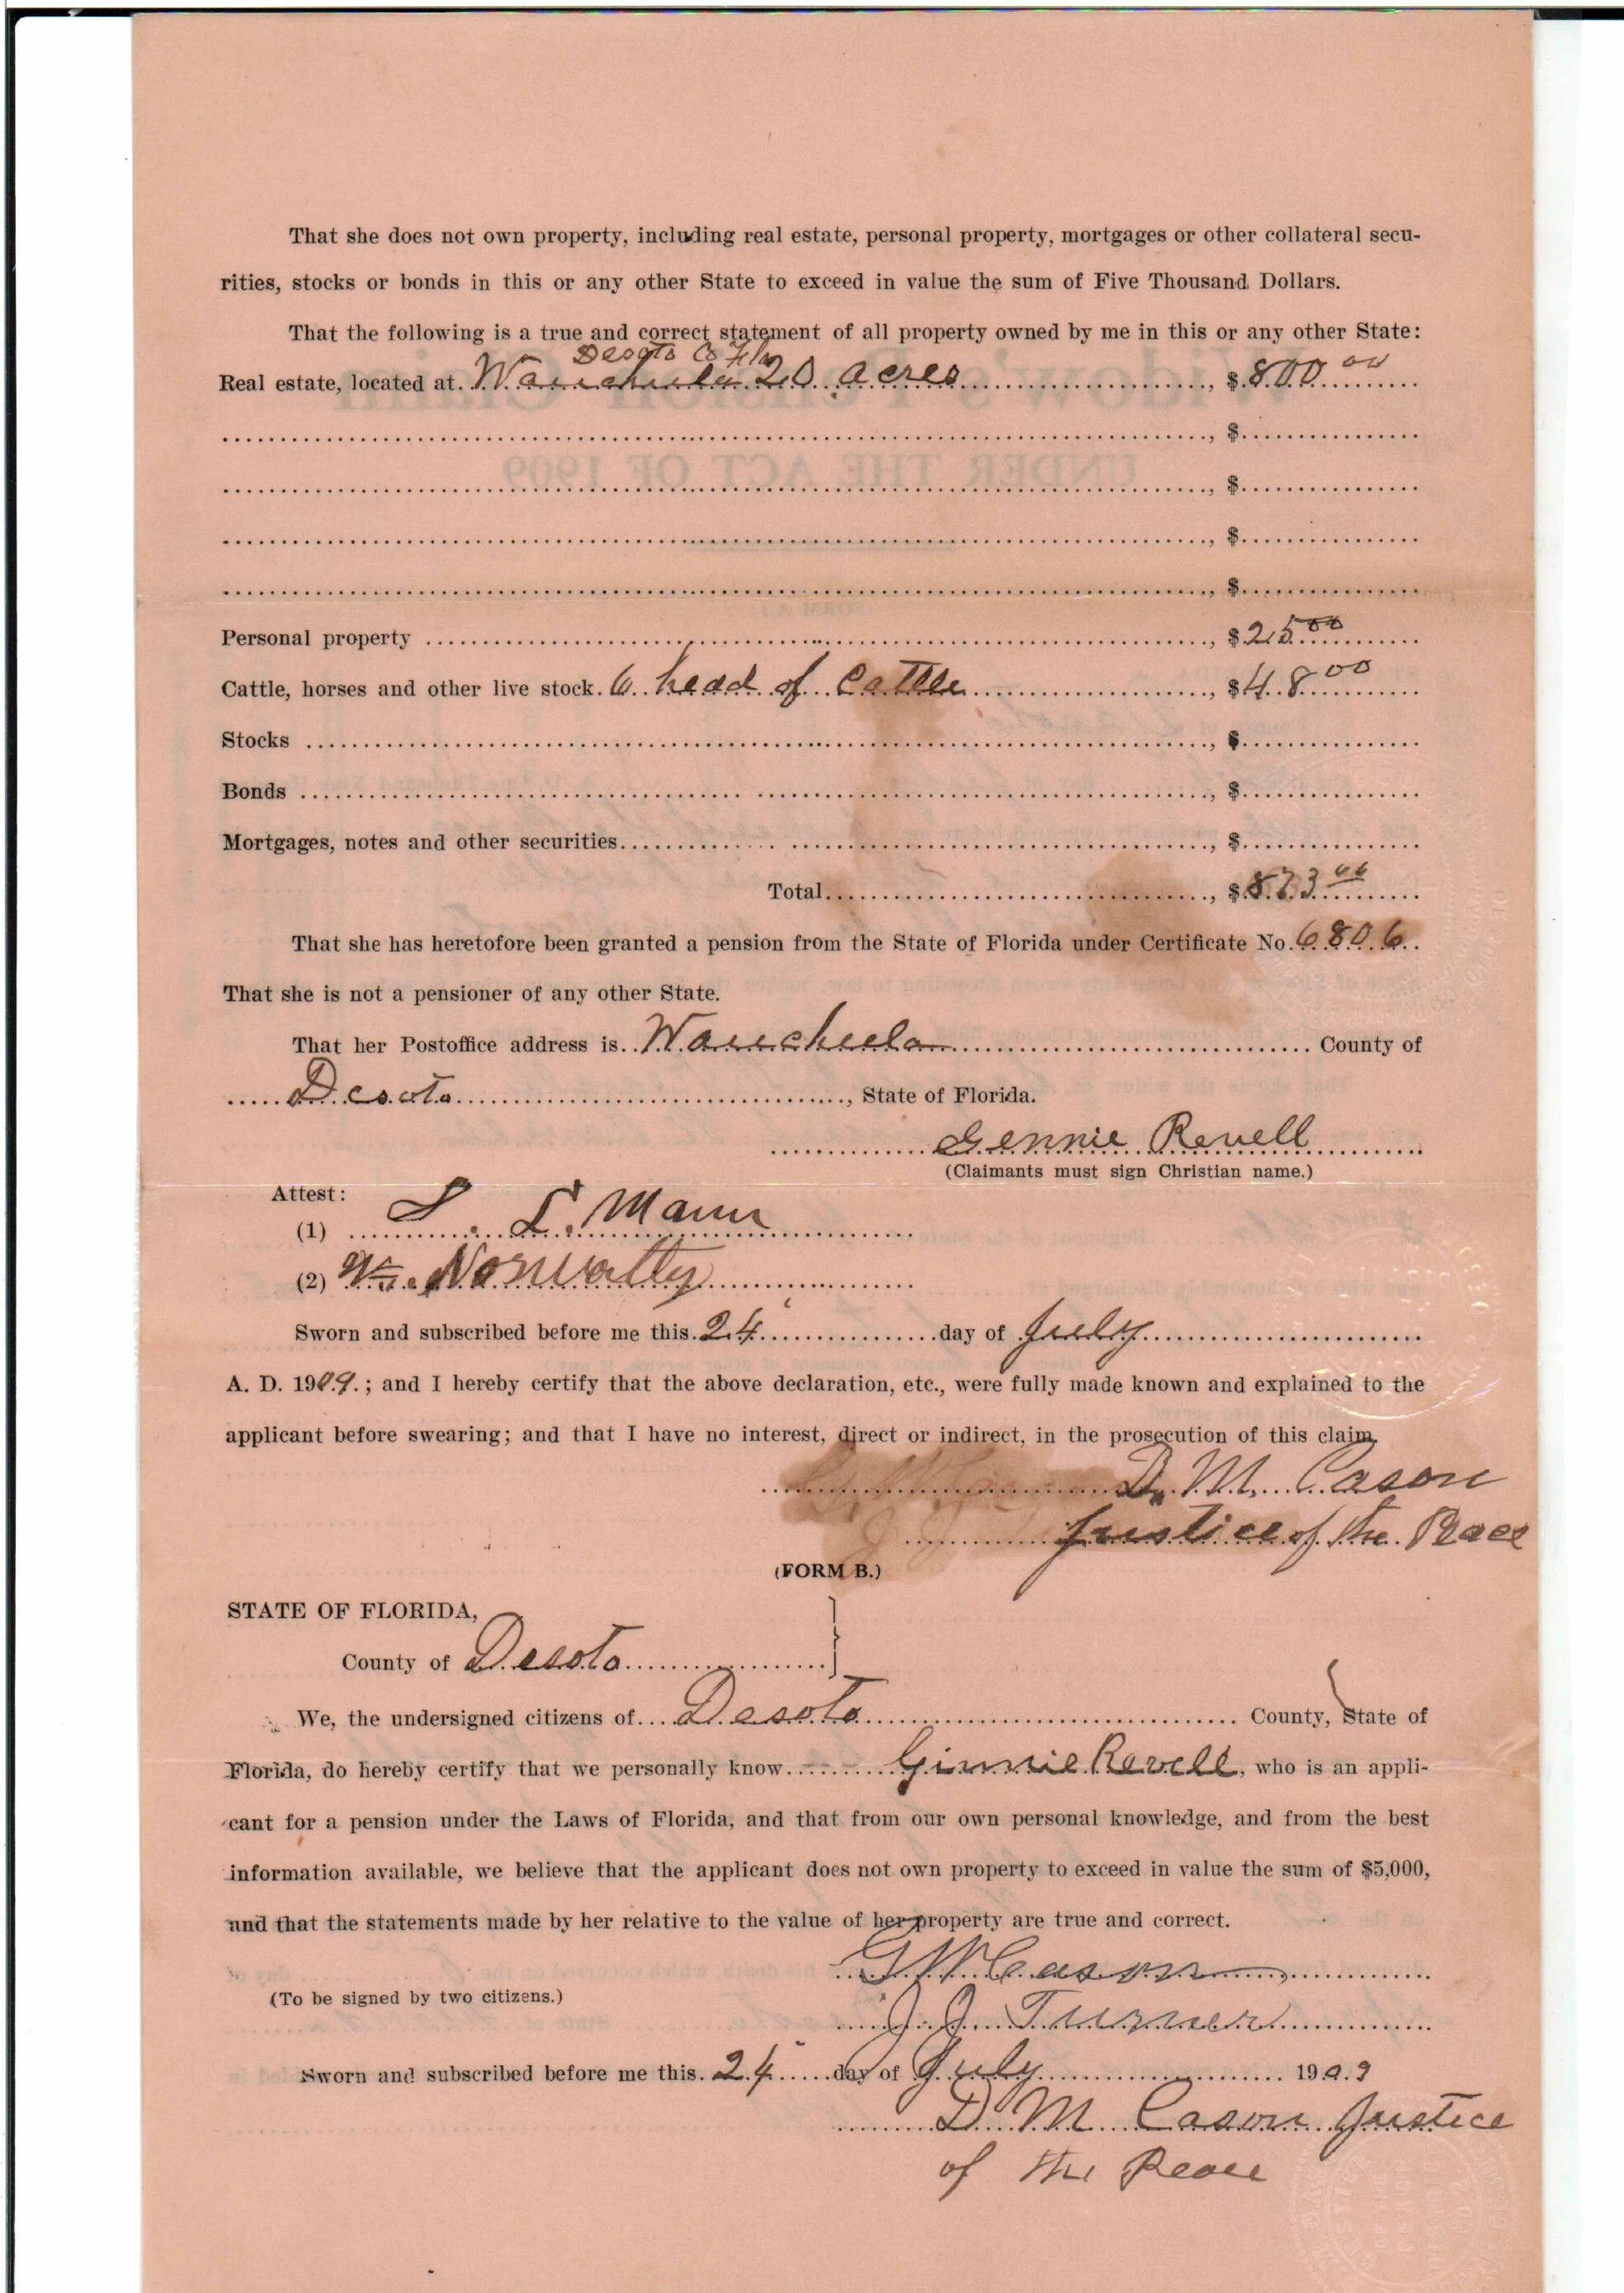 That she does not own property, including real estate, personal property, mortgages or other collateral secu-
rities, stocks or bonds in this or any other State to exceed in value the sum of Five Thousand Dollars.
That the following is a true and correct statement of all property owned by me in this or any other State:
Desoto Co Fla
Real estate, located at. Wauchula 20 acres, $ 800 00
, $
, $
, $
, $
Personal property, $ 25 00
Cattle, horses and other live stock. 6 head of Cattle, $ 48 00
Stocks, $
Bonds, $
Mortgages, notes and other securities, $
Total, $ 873 00
That she has heretofore been granted a pension from the State of Florida under Certificate No. 6806.
That she is not a pensioner of any other State.
That her Postoffice address is Wauchula County of
Desoto, State of Florida.
Gennie Revell
(Claimants must sign Christian name.)
Attest:
(1) L. Mann
(2) Wm.
Sworn and subscribed before me this 24 day of July
A. D. 1909.; and I hereby certify that the above declaration, etc., were fully made known and explained to the
applicant before swearing; and that I have no interest, direct or indirect, in the prosecution of this claim,
D. M. Cason
Justice of the Peace
(FORM B.)
STATE OF FLORIDA,
County of Desoto
We, the undersigned citizens of Desoto County, State of
Florida, do hereby certify that we personally know Ginnie Revell, who is an appli-
cant for a pension under the Laws of Florida, and that from our own personal knowledge, and from the best
information available, we believe that the applicant does not own property to exceed in value the sum of $5,000,
and that the statements made by her relative to the value of her property are true and correct.
G W Cason
(To be signed by two citizens.)
J. J. Turner
Sworn and subscribed before me this. 24 day of July 1909
D. M. Cason Justice
of the Peace